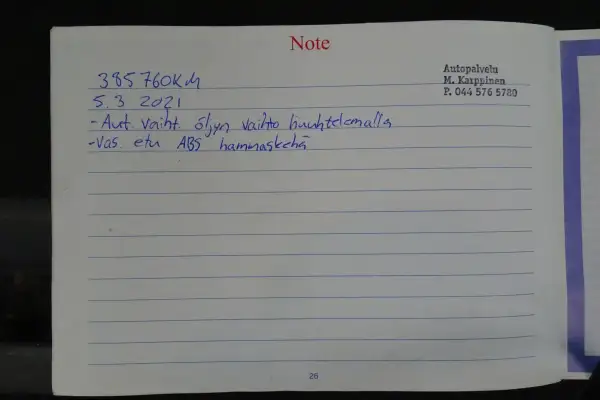 Note
Autopalvelu
M. Karppinen
P. 044 576 5780
385 760KM
5.3 2021
- Aut. vaiht. öljyn vaihto huuhtelemalla
- Vas. etu ABS hammaskehä
26